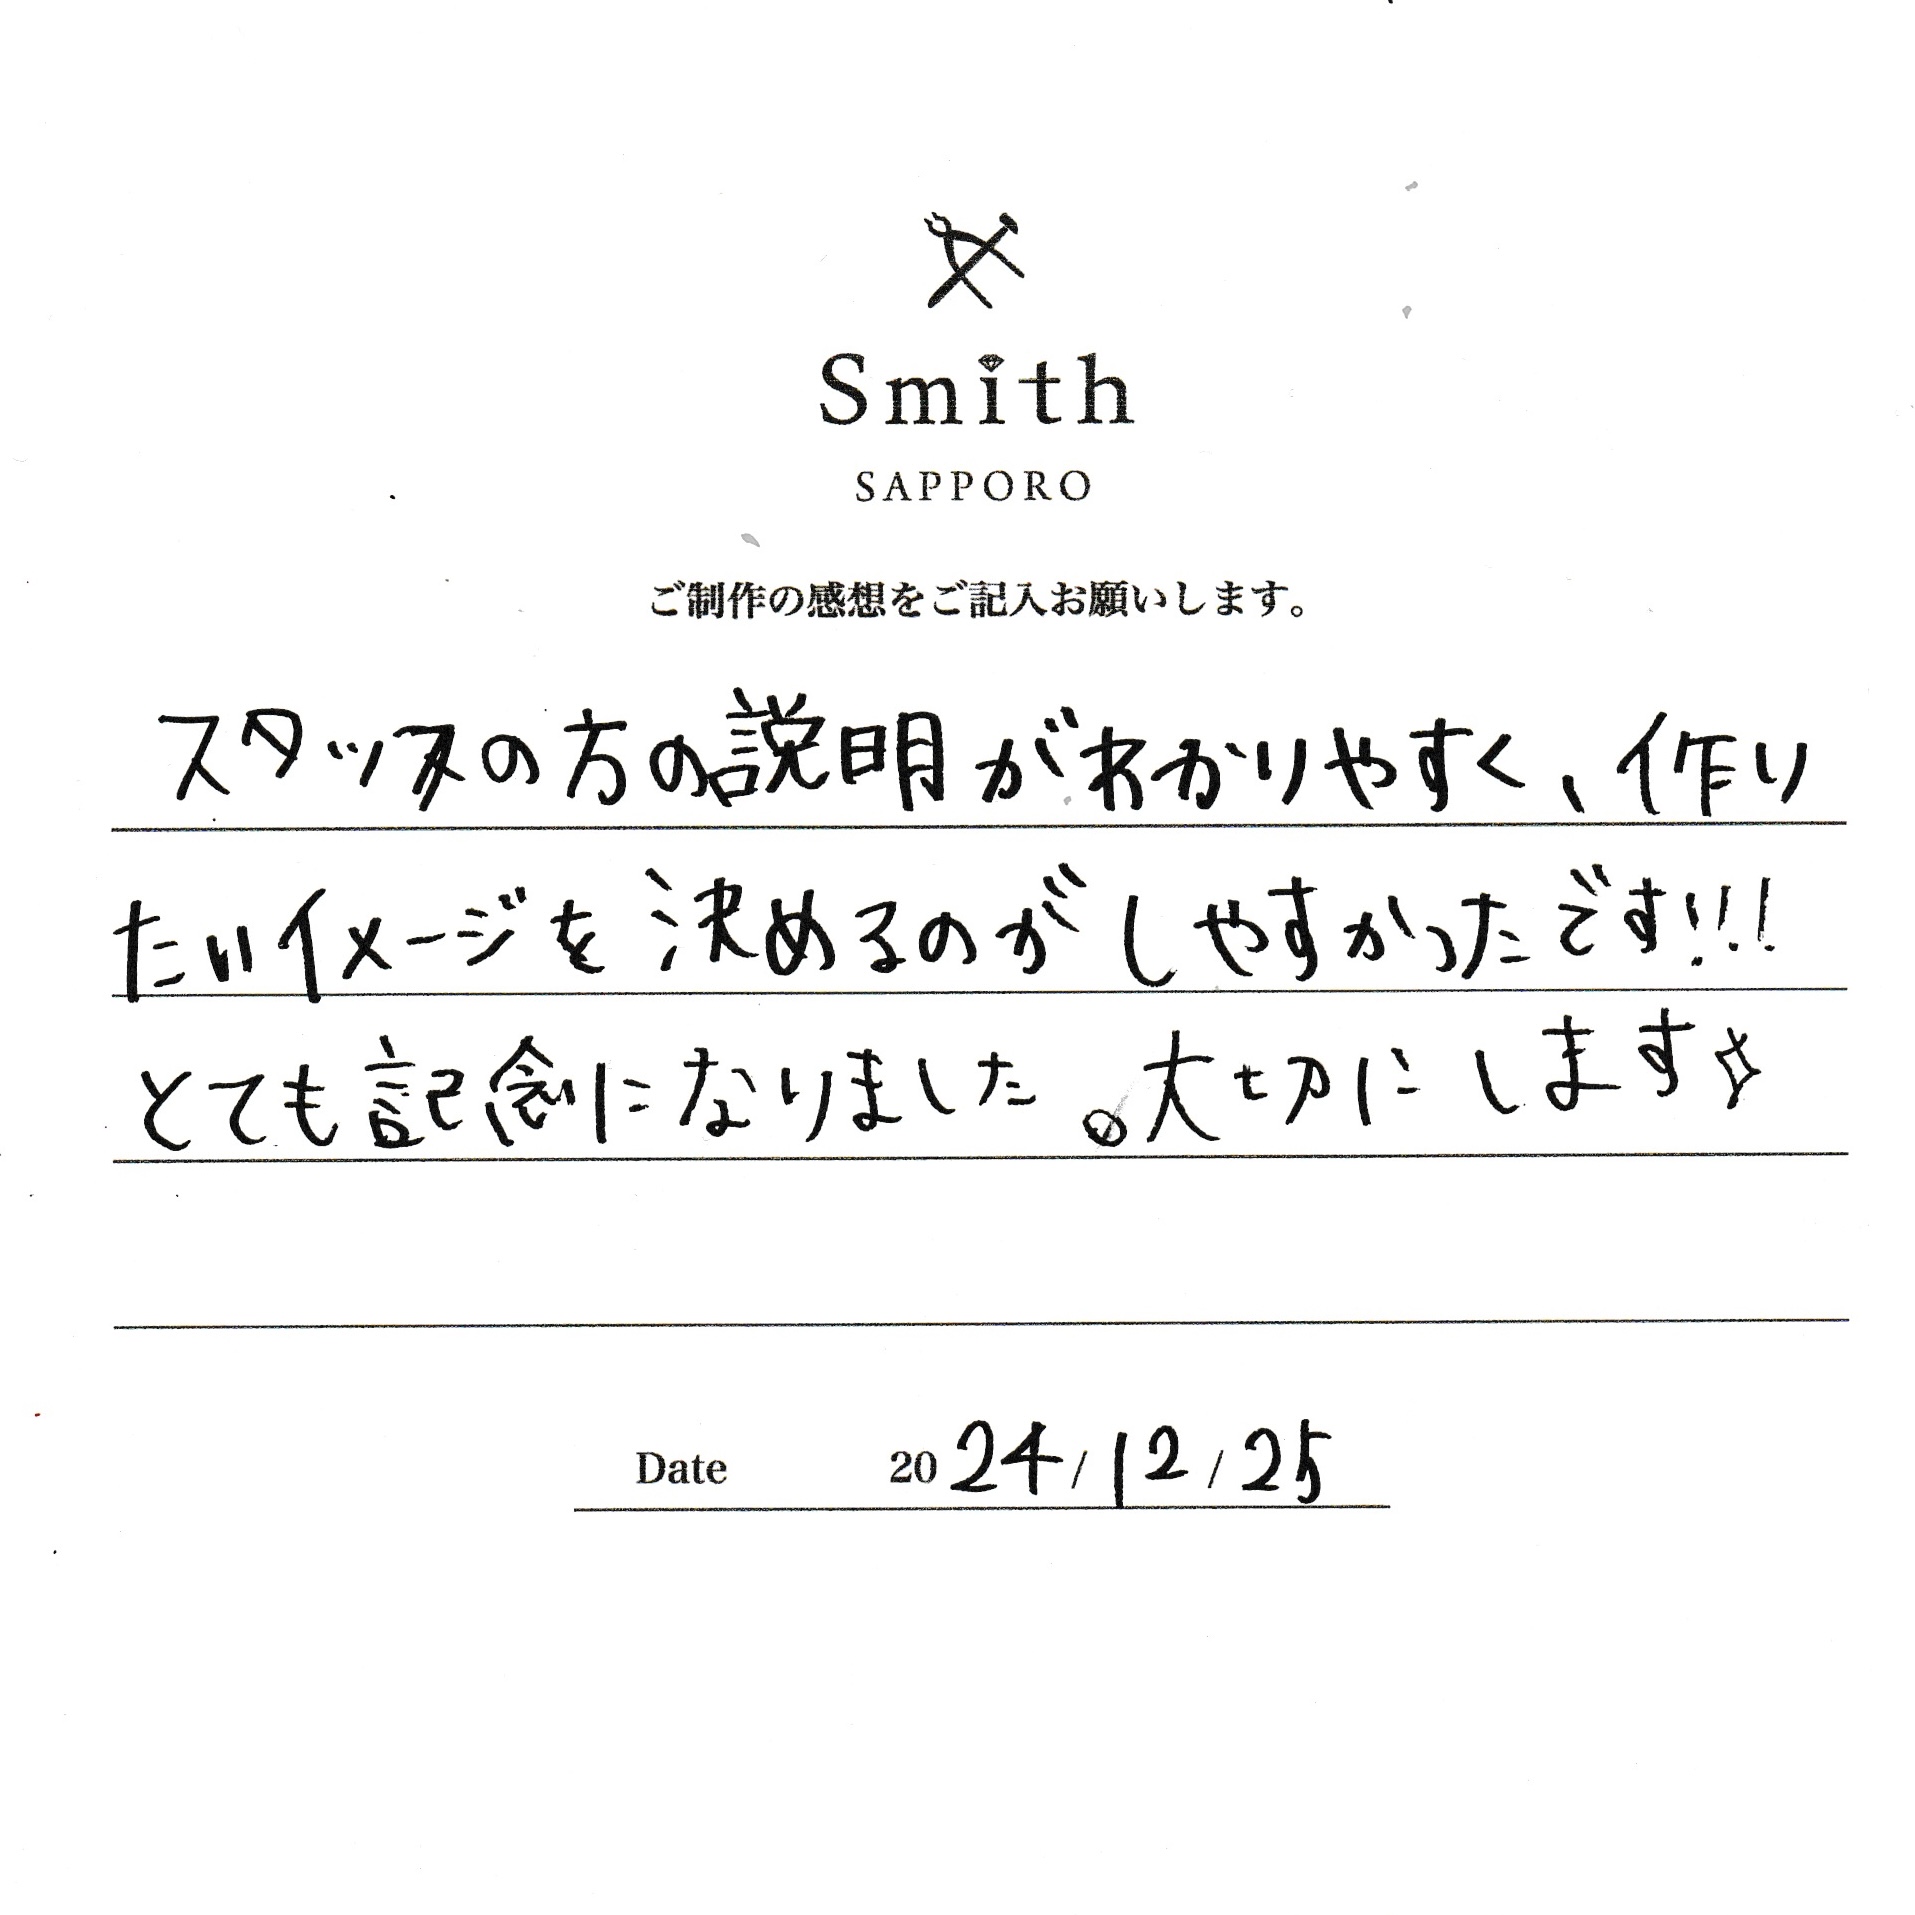 Smith
SAPPORO
ご制作の感想をご記入お願いします。
スタッフの方の説明がわかりやすく、作り
たいイメージを決めるのがしやすかったです!!!
とても記念になりました。大切にします✧
Date 2024/12/25